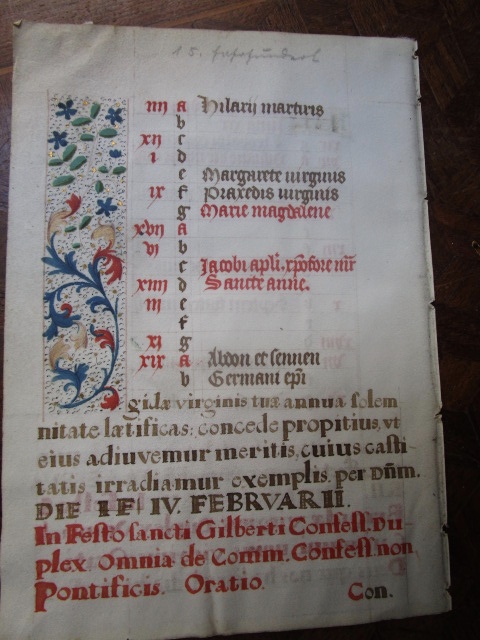 15. Jahrhundert
iiij a Hilarij martiris
b
xij c
i d
e Margarete uirginis
ix f Praxedis uirginis
g Marie magdalene
xvij a
vi b
c Jacobi apli. xpofore mr
xiiij d Sancte anne.
iij e
f
xi g
xix a Abdon et sennen
b Germani epi
gidæ virginis tuæ annua solem
nitate lætificas: concede propitius, vt
eius adiuvemur meritis, cuius casti-
tatis irradiamur exemplis. per Dñm.
DIE IV. FEBRVARII
In Festo sancti Gilberti Confess. Du
plex Omnia de Comm. Confess. non
Pontificis. Oratio. Con.